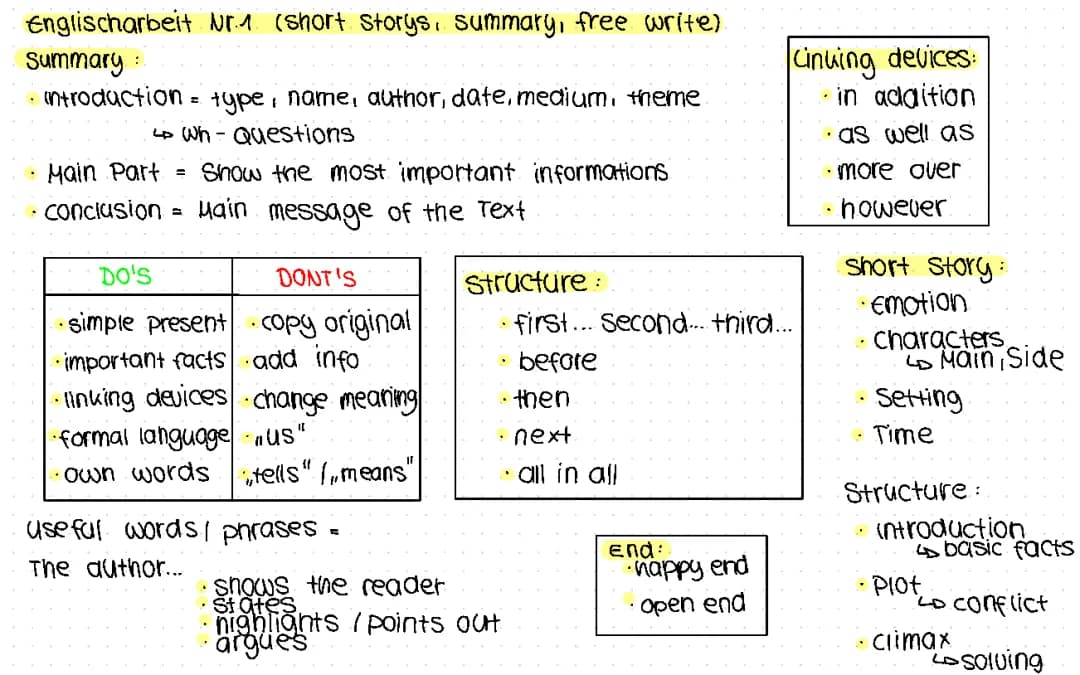 Englischarbeit Nr.1 (short storys, summary, free write)
Summary :
• Introduction = type, name, author, date, medium, theme
↳ Wh - Questions
• Main Part = Show the most important informations
• Conclusion = Main message of the Text
Linking devices:
• in addition
• as well as
• more over
• however
DO'S
• simple present
• important facts
• linking devices
• formal language
• own words
DONT'S
• copy original
• add info
• change meaning
• „us"
• „tells" / „means"
Structure :
• first... second... third...
• before
• then
• next
• all in all
Short Story :
• Emotion
• Characters
↳ Main, Side
• Setting
• Time
Structure :
• Introduction
↳ basic facts
• Plot
↳ conflict
• Climax
↳ solving
useful words / phrases =
The author...
• shows the reader
• states
• highlights / points out
• argues
End:
• happy end
• open end